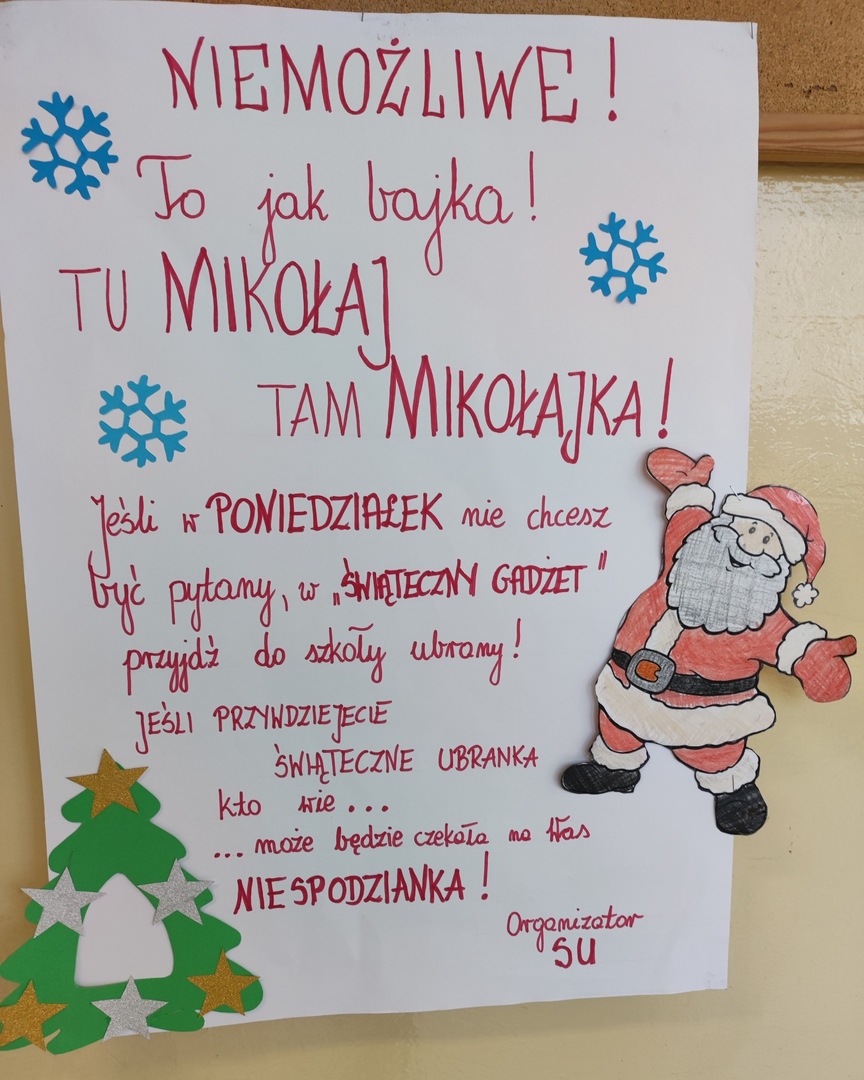 NIEMOŻLIWE!
To jak bajka!
TU MIKOŁAJ
TAM MIKOŁAJKA!
Jeśli w PONIEDZIAŁEK nie chcesz
być pytany, w „ŚWIĄTECZNY GADŻET"
przyjdź do szkoły ubrany!
JEŚLI PRZYWDZIEJECIE
ŚWIĄTECZNE UBRANKA
kto wie...
...może będzie czekała na Was
NIESPODZIANKA!
Organizator
SU